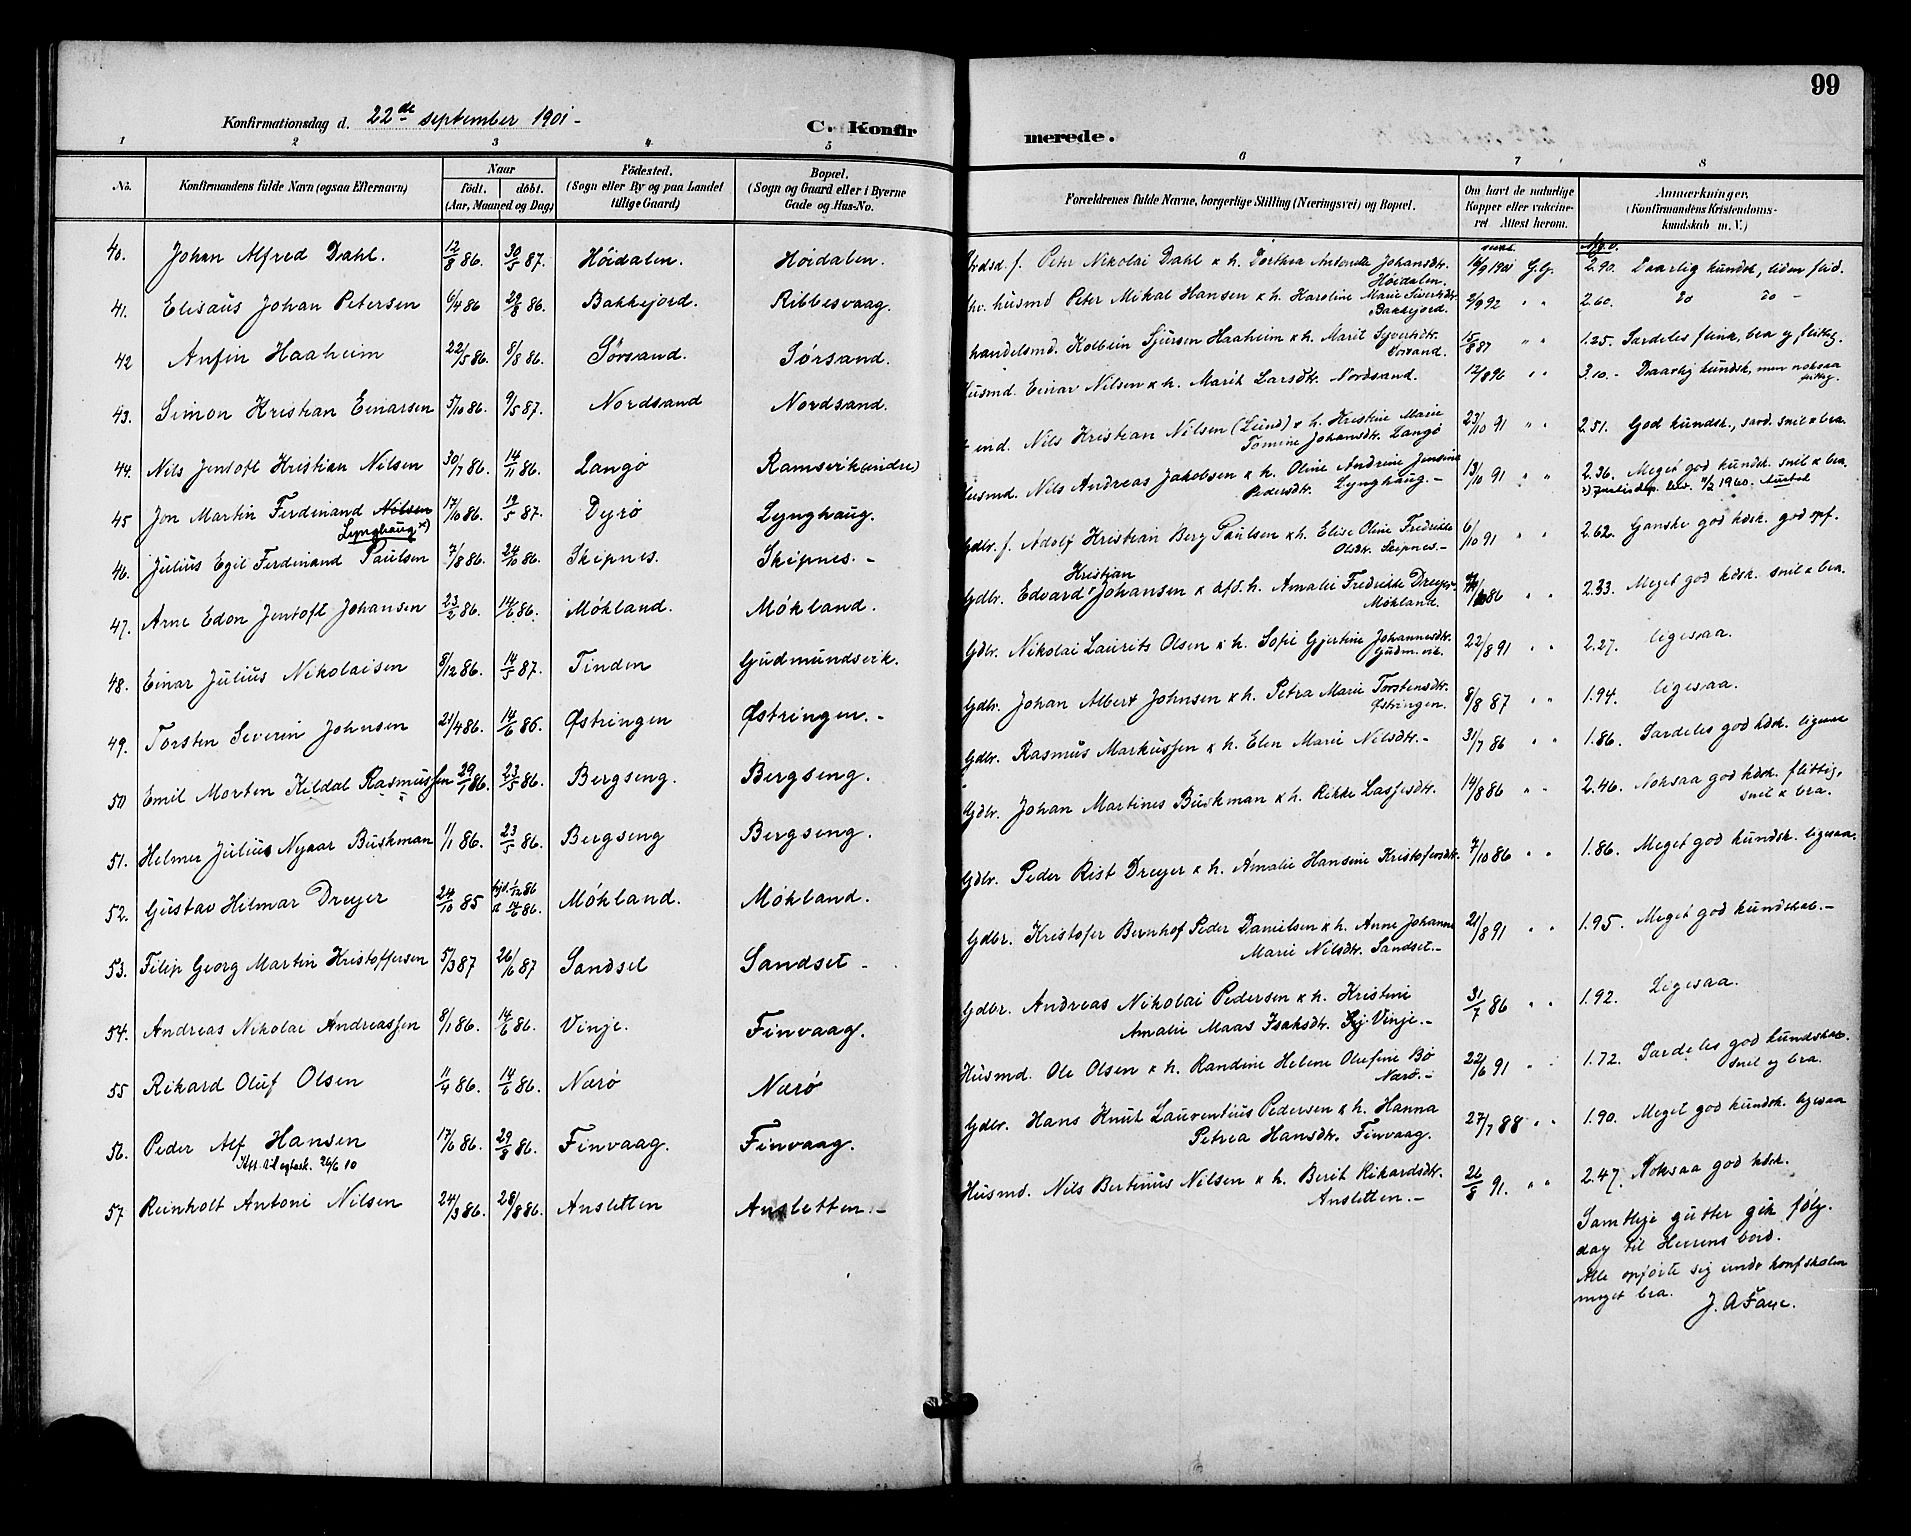 99
Konfirmationsdag d. 22de september 1901 -
C. Konfirmerede.
1 2 3 4. 5 6 7 8
No. Konfirmandens fulde Navn (ogsaa Efternavn) Naar födt. döbt. (Aar, Maaned og Dag) Födested. (Sogn eller By og paa Landet tillige Gaard) Bopæl. (Sogn og Gaard eller i Byerne Gade og Hus-No. Forældrenes fulde Navne, borgerlige Stilling (Næringsvei) og Bopæl. Om havt de naturlige Kopper eller vakcineret. Attest herom. Anmærkninger. (Konfirmandens Kristendomskundskab m. V.)
40. Johan Alfred Dahl. 12/8 86. 30/5 87. Höidalen. Höidalen. f. Peter Nikolai Dahl & h. Dorthea Antonette Johansdtr. Höidalen. 16/9 1901 G.G. 2.90. Daarlig kundsk, liden flid.
41. Elisäus Johan Petersen 6/4 86 29/8 86. Bakkejord. Ribbesvaag. husmd Peter Mikal Hansen & h. Karoline Marie Sivertsdtr. Bakkejord. 2/9 92 " " 2.60. do do -
42 Anfin Haaheim 22/5 86. 8/8 86. Sörsand. Sörsand. handelsmd. Kolbein Sjursen Haaheim & h. Marit Syvertsdtr. Sörsand. 15/8 87 " " 1.25. Særdeles flink, bra og flittig.
43. Simon Kristian Einarsen 5/10 86. 9/5 87. Nordsand Nordsand. Husmd. Einar Nilsen & h. Marit Larsdtr. Nordsand. 12/8 96 " " 3.10. - Daarlig kundsk, men noksaa flittig.
44. Nils Jentoft Kristian Nilsen 30/7 86. 14/11 86. Langö Ramsvik (indre) md. Nils Kristian Nilsen (Lund) & h. Kristine Marie Tomine Johansdtr. Langö 23/10 91 " " 2.51. God kundsk., særd. snil & bra.
45 Jon Martin Ferdinand Nilsen Lynghaug x) 17/10 86. 19/5 87. Dyrö Lynghaug. Husmd. Nils Andreas Jakobsen & h. Oline Andrine Jensine Pedersdtr. Lynghaug. - 13/10 91 " " 2.36. Meget god kundsk. snil & bra.
x) Justisdep. bev. 11/2 1960.
46. Julius Egil Ferdinand Paulsen 7/8 86. 24/10 86. Skipnes. Skipnes. - Gdbr. f. Adolf Kristian Berg Paulsen & h. Elise Oline Fredrikke Olsdtr. Skipnes. - 6/10 91 " " 2.62. Ganske god kdsk. god opf.
47. Arne Edon Jentoft Johansen 23/2 86. 14/6 86. Mökland. Mökland. Gdbr. Edvard Kristian Johansen & afd. h. Amalie Fredrikke Dreyer Mökland. 86 " " 2.33. Meget god kdsk. snil & bra.
48. Einar Julius Nikolaisen 8/12 86. 14/5 87. Tinden Gudmundsvik. Gdbr. Nikolai Laurits Olsen & h. Sofie Gjertine Johannesdtr. Gudm.vik. 22/8 91 " " 2.27. ligesaa.
49. Torsten Severin Johnsen 21/4 86. 14/6 86. Østringen Østringen. - Gdbr. Johan Albert Johnsen & h. Petra Marie Torstensdtr. Østringen. 8/8 87 " " 1.94. ligesaa.
50 Emil Morten Kildal Rasmussen 29/1 86. 23/5 86. Bergseng. Bergseng. Gdbr. Rasmus Markussen & h. Elen Marie Nilsdtr. - 31/7 86 " " 1.86. Særdeles god kdsk. ligesaa
51. Helmer Julius Nyaar Buskman 1/1 86. 23/5 86. Bergseng Bergseng. Gdbr. Johan Martines Buskman & h. Rikke Lassesdtr. 14/8 86 " " 2.46. Noksaa god kdsk. flittig, snil & bra.
52. Gustav Hilmar Dreyer 24/10 85 hjd. 1/12 86 14/6 86. Mökland. Mökland. Gdbr. Peder Rist Dreyer & h. Amalie Hansine Kristofersdtr. 7/10 86 " " 1.86. Meget god kundsk. ligesaa.
53. Filip Georg Martin Kristoffersen 5/3 87 26/6 87 Sandset Sandset - Gdbr. Kristofer Bernhof Peder Danielsen & h. Anne Johanna Marie Nilsdtr. Sandset. - 21/8 91 " " 1.95. Meget god kundskab. -
54. Andreas Nikolai Andreassen 8/1 86. 14/6 86. Vinje. Finvaag. Gdbr. Andreas Nikolai Pedersen & h. Kristine Amalie Maas Isaksdtr. Vinje. - 31/7 86 " " 1.92. Ligesaa.
55 Rikard Oluf Olsen 11/4 86. 14/6 86. Nærö Nærö Husmd. Ole Olsen & h. Randine Helene Olufine Bö Nærö. - 22/6 91 " " 1.72. Særdeles god kundskab. snil og bra.
56. Peder Alf Hansen 17/6 86. 29/8 86. Finvaag. Finvaag. Gdbr. Hans Knut Laurentius Pedersen & h. Hanna Petrea Hansdtr. Finvaag. 27/7 88 " " 1.90. Meget god kundsk. ligesaa
Att. til egtesk. 26/6 10
57. Reinholt Antoni Nilsen 24/3 86. 28/8 86. Ansletten Ansletten. - Husmd. Nils Bertinus Nilsen & h. Berit Rikardsdtr. Ansletten. - 26/8 91. " " 2.47. Noksaa god kdsk.
Samtlige gutter gik fölg.
dag til Herrens bord.
Alle opförte sig under konfskolen
meget bra.
J. A Faye.